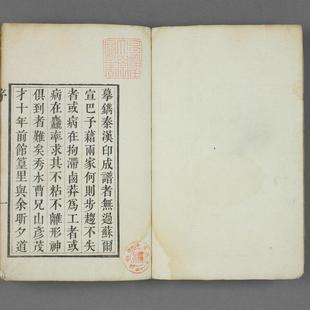 摹鐫秦漢印成譜者無過蘇爾
宣巴子藉兩家何則步趨不失
者或病在拘滯鹵莽爲工者或
病在麤率求其不粘不離形神
俱到者難矣秀水曹兄山彥茂
才十年前館篁里與余昕夕道